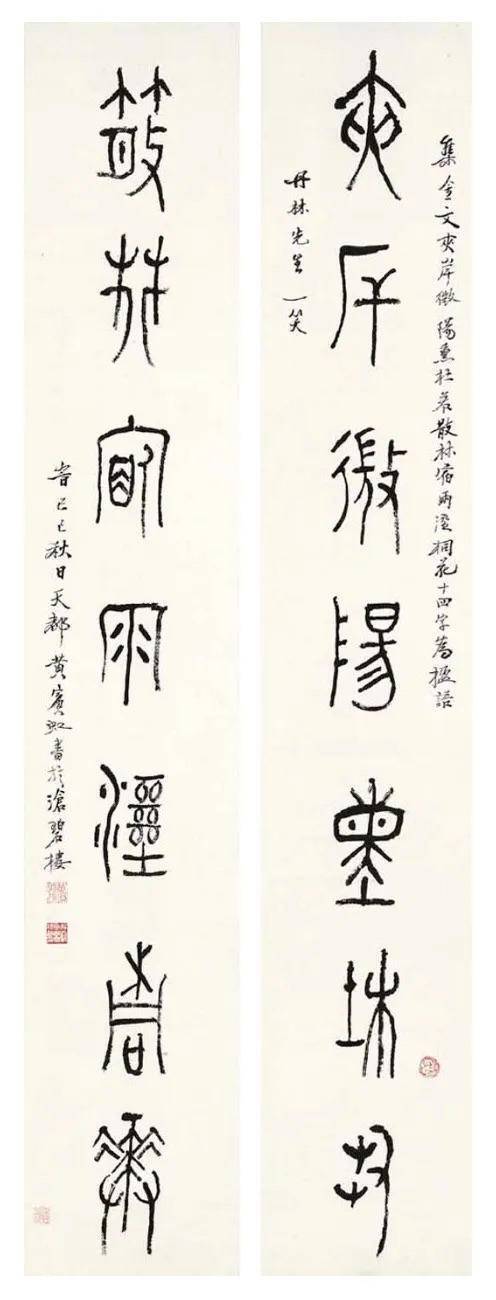 集金文夾岸微陽熏杜若散林宿雨溼桐花十四字為楹語
夾岸微陽熏杜若
丹林先生一笑
散林宿雨溼桐花
旹己巳秋日天都黃賓虹書於滄碧樓